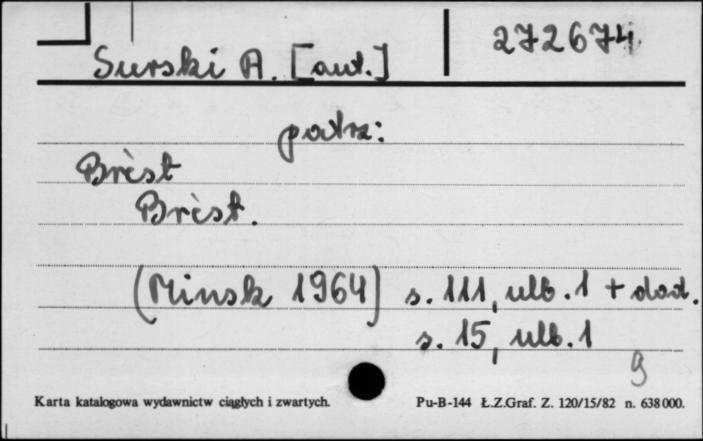 Surski A. [aut.] 272674
patrz:
Brèst
Brèst.
(Minsk 1964) s. 111, ulb. 1 + dod.
s. 15, ulb. 1
9
Karta katalogowa wydawnictw ciągłych i zwartych. Pu-B-144 Ł.Z.Graf. Z. 120/15/82 n. 638 000.